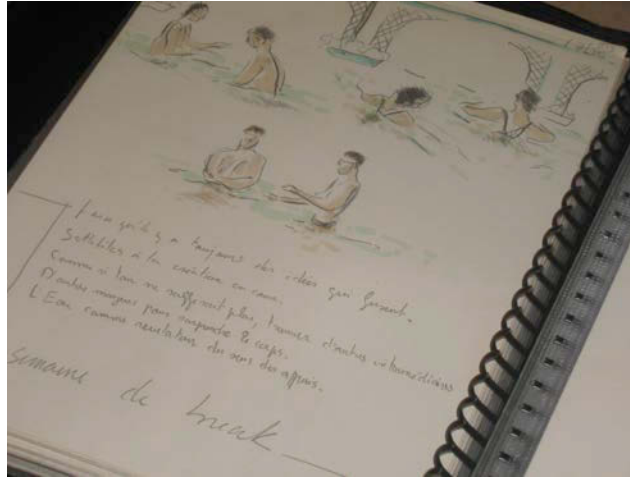 qu'il y a toujours des idées qui fusent.
à la création en cours.
Comme si l'on ne suffisait plus, trouver d'autres intermédiaires
D'autres moyens pour suspendre le corps.
L'Eau comme révélateur du sens des appuis.
Semaine de break